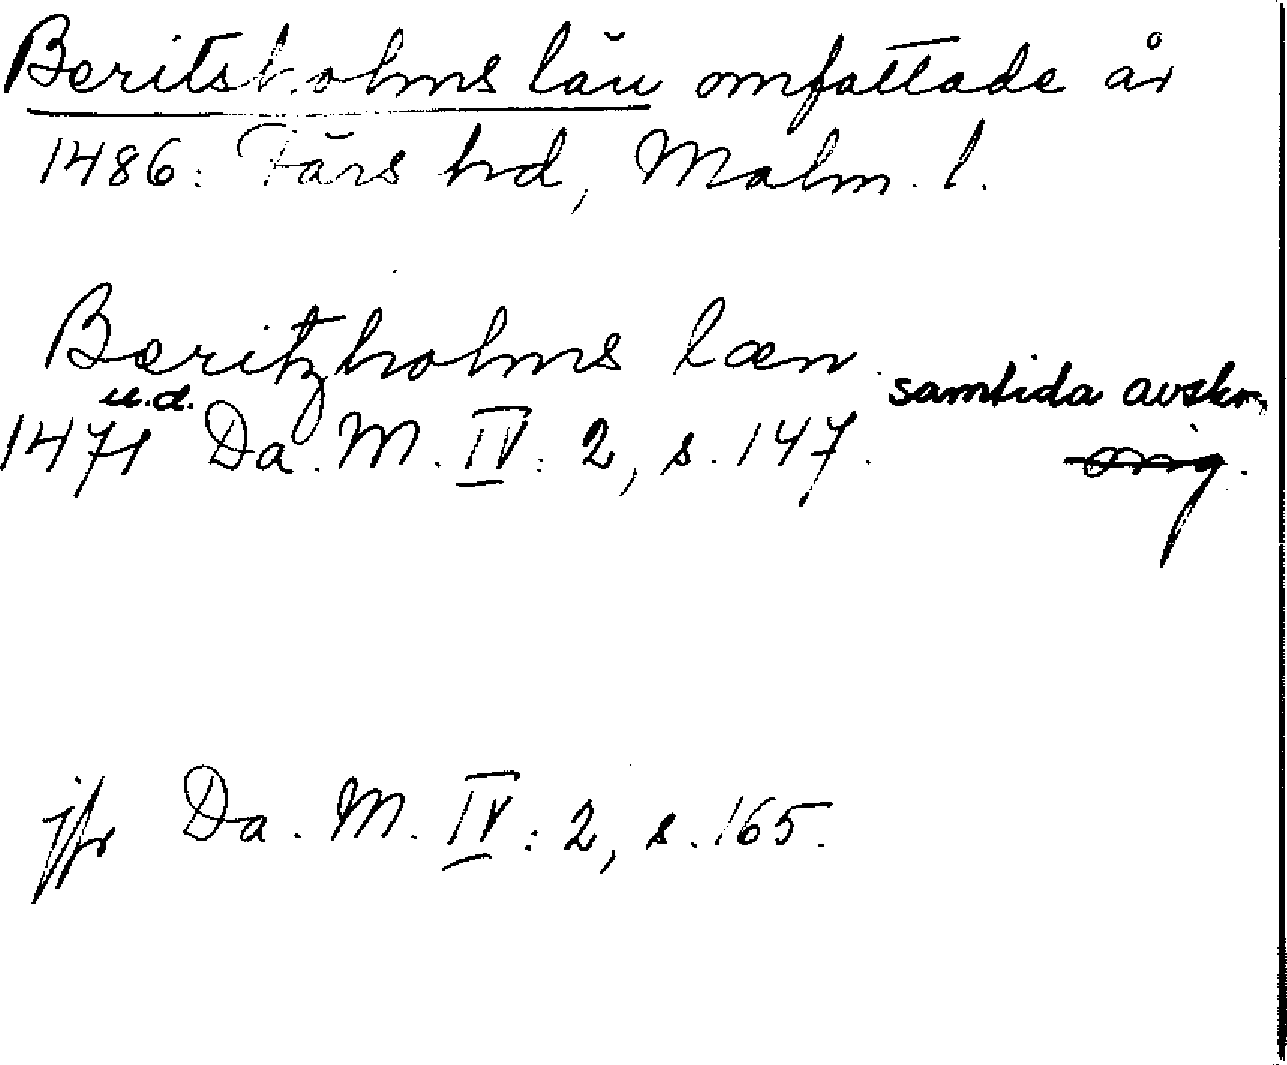 Beritsholms län omfattade år
1486: Färs hd, Malm. l.
Bæritzholms læn. samtida avskr.
u.d.
1471 Da. M. IV: 2, s. 147. orig.
jfr Da. M. IV: 2, s. 165.